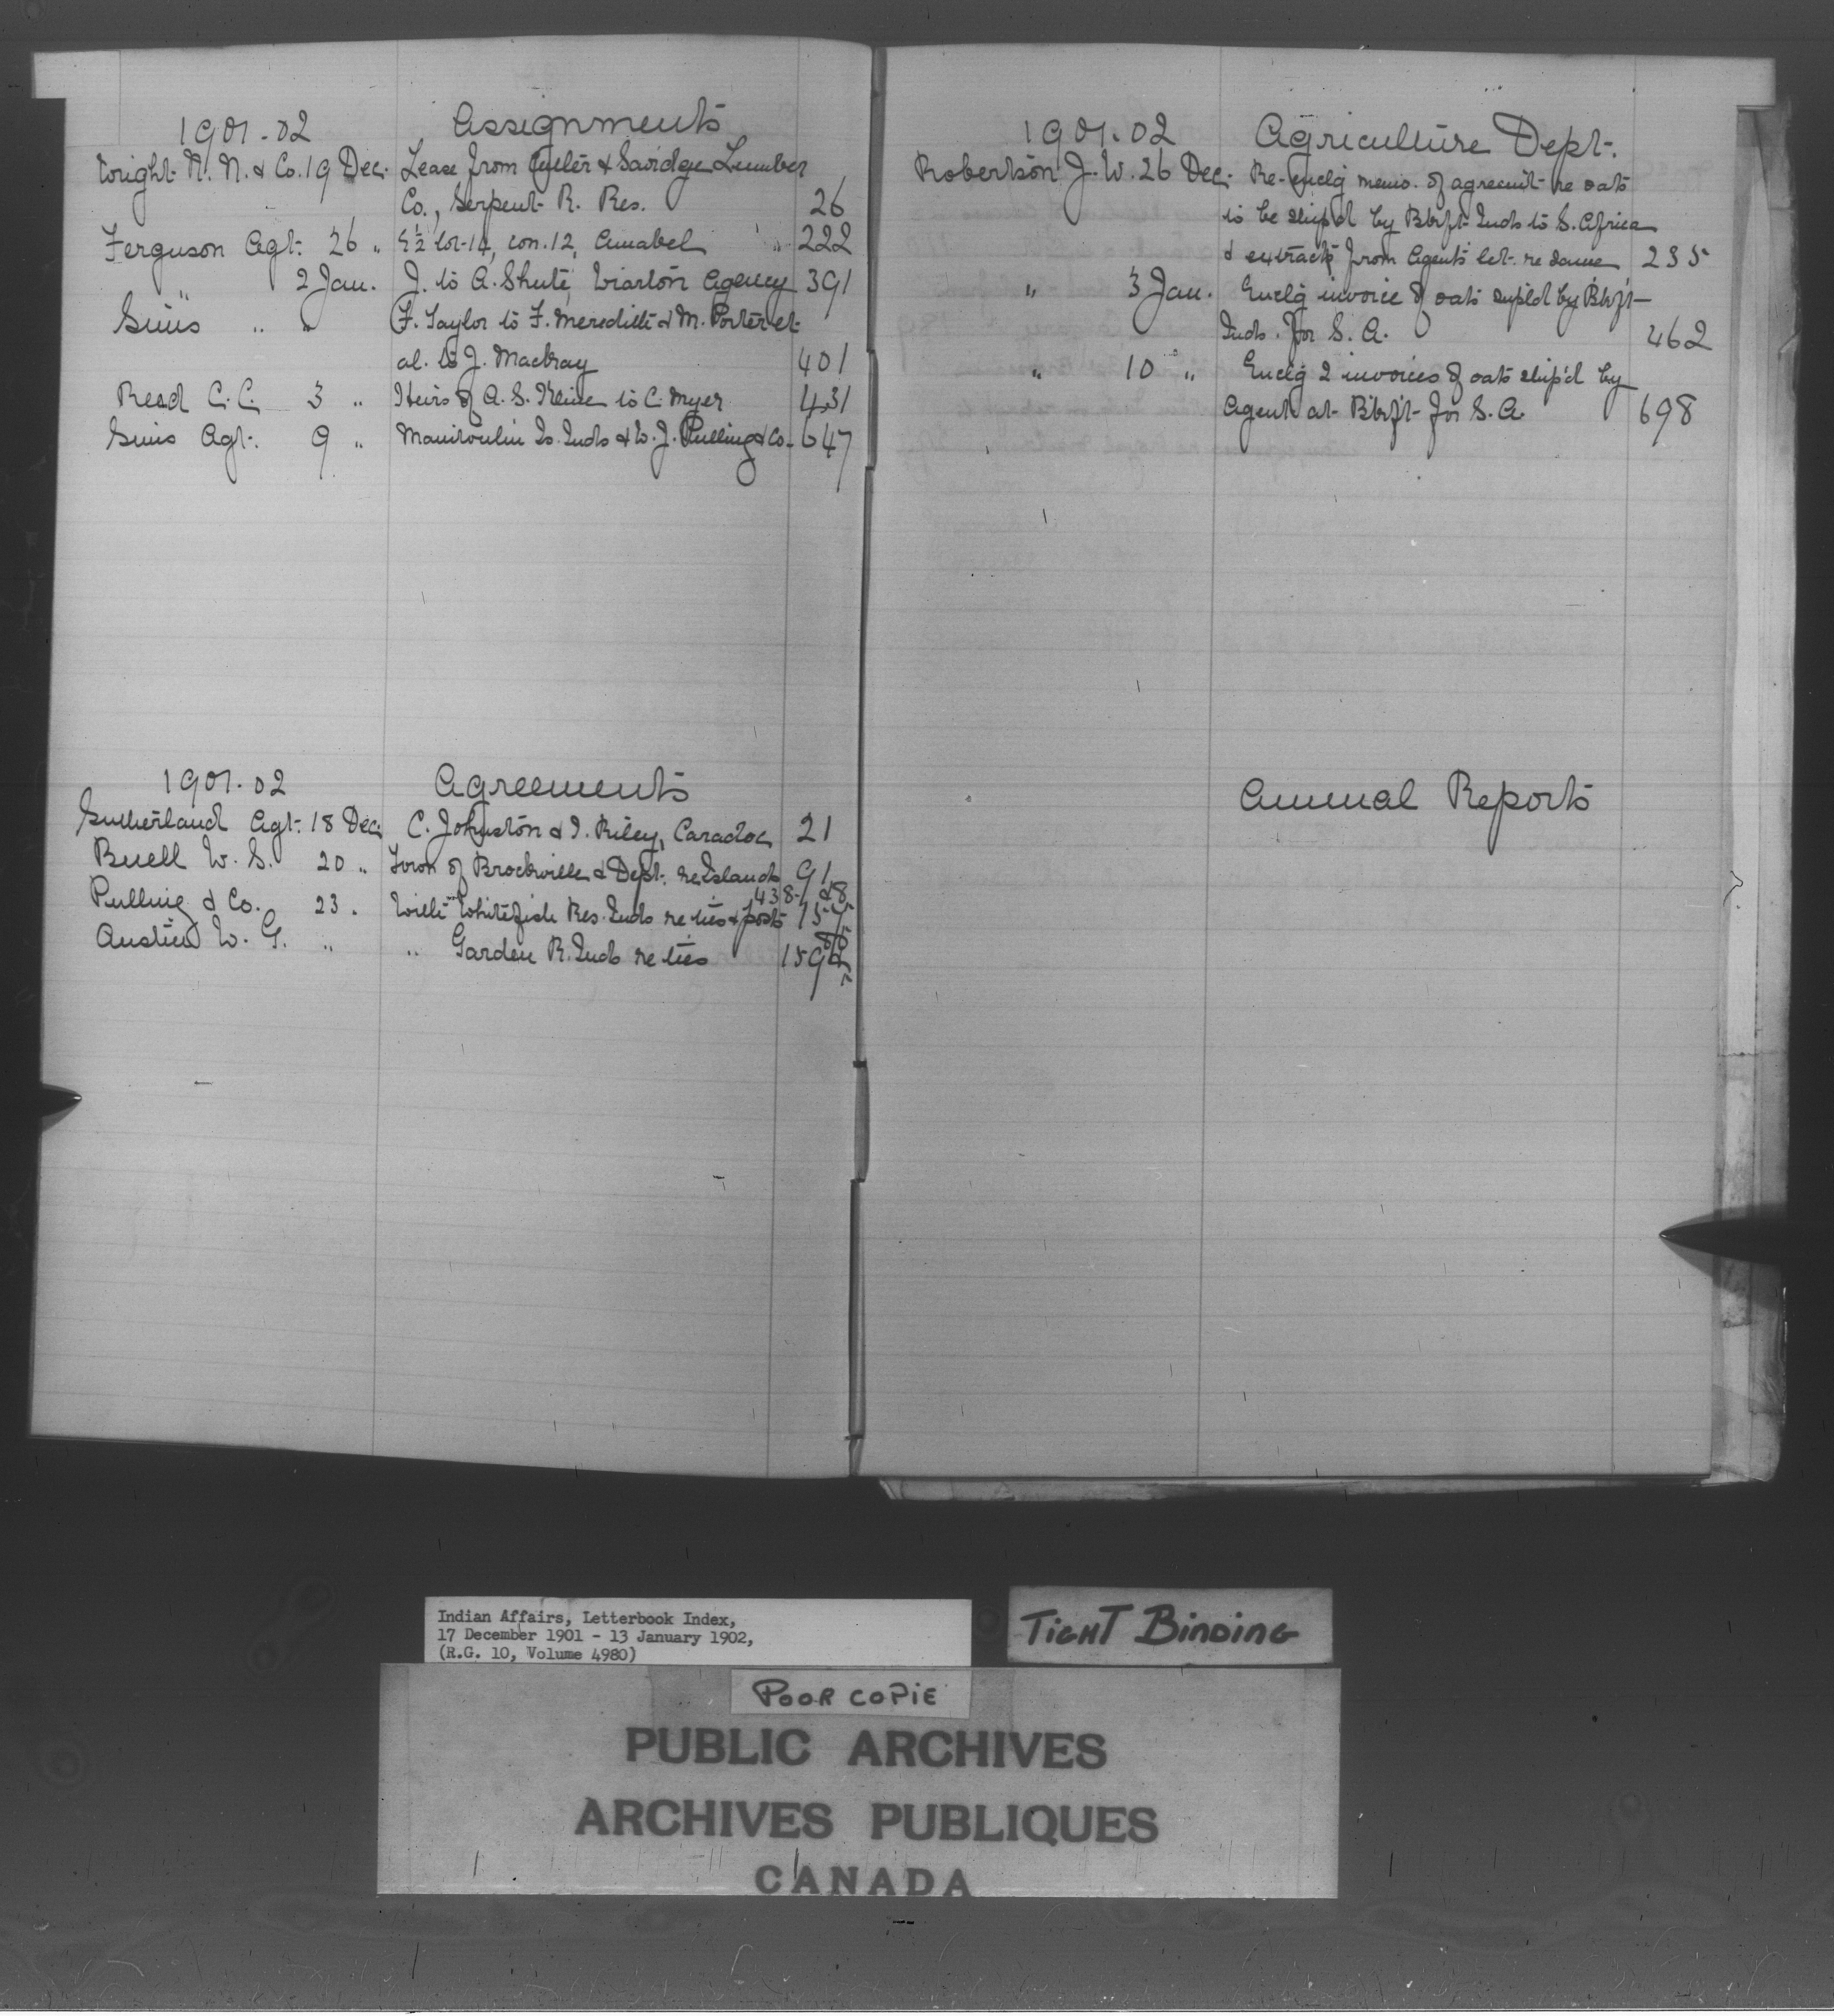 1901-02 Assignments
Wright N. N. & Co. 19 Dec. Lease from Cutler & Savidge Lumber
Co., Serpent R. Res. 26
Ferguson Agt. 26 " E½ lot 14, con. 12, Amabel " 222
" 2 Jan. J. to A. Shute, Wiarton Agency 391
Sims " " F. Taylor to F. Meredith & M. Porter et
al. to J. 401
Read C. C. 3 " Heirs of A. S. Kline to C. Myer 431
Sims Agt. 9 " Manitoulin Is. Inds & W. J. Pulling & Co. 647
1901-02 Agreements
Sutherland Agt. 18 Dec. C. Johnston & I. Riley, Caradoc 21
Buell W. S. 20 " Town of Brockville & Dept. re Islands 91
438-
Pulling & Co. 23 . With Whitefish Res. Inds re ties & posts
Austin W. G. " " Garden R. Inds re ties
1901-02 Agriculture Dept.
Robertson J. W. 26 Dec. Re-enclg memo. of agreem't re oats
to be ship'd by Btrft Inds to S. Africa
& extracts from Agents let. re same 235
" 3 Jan. Enclg invoice of oats sup'ld by Btrf't
Inds. for S. A. 462
" 10 " Enclg 2 invoices of oats ship'd by
Agent at B'trf't for S. A. 698
Annual Reports
Indian Affairs, Letterbook Index,
17 December 1901 - 13 January 1902,
(R.G. 10, Volume 4980)
TIGHT BINDING
POOR COPIE
PUBLIC ARCHIVES
ARCHIVES PUBLIQUES
CANADA